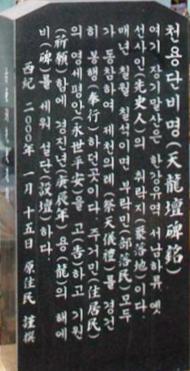 천용단비명(天龍壇碑銘)
여기 장기말산은 한강유역 서남하류 옛
선사인(先史人)의 취락지(聚落地)이다
매년 칠월 칠석이면 부락민(部落民) 모두
가 동참하여 제천의례(祭天儀禮)를 경건
히 봉행(奉行)하던 곳이다 주거민(住居民)
의 영세평안(永世平安)을 고(告)하고 기원
(祈願)함에 경진년(庚辰年) 용(龍)의 해에
비(碑)를 세워 설단(設壇)하다.
西紀 二000年 一月 十五日 原住民 謹撰